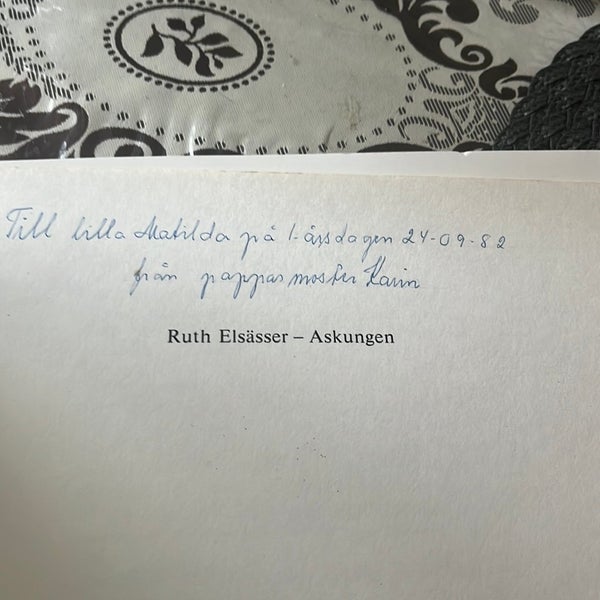 Till lilla Matilda på 1-årsdagen 24-09-82
från pappas moster Karin
Ruth Elsässer – Askungen